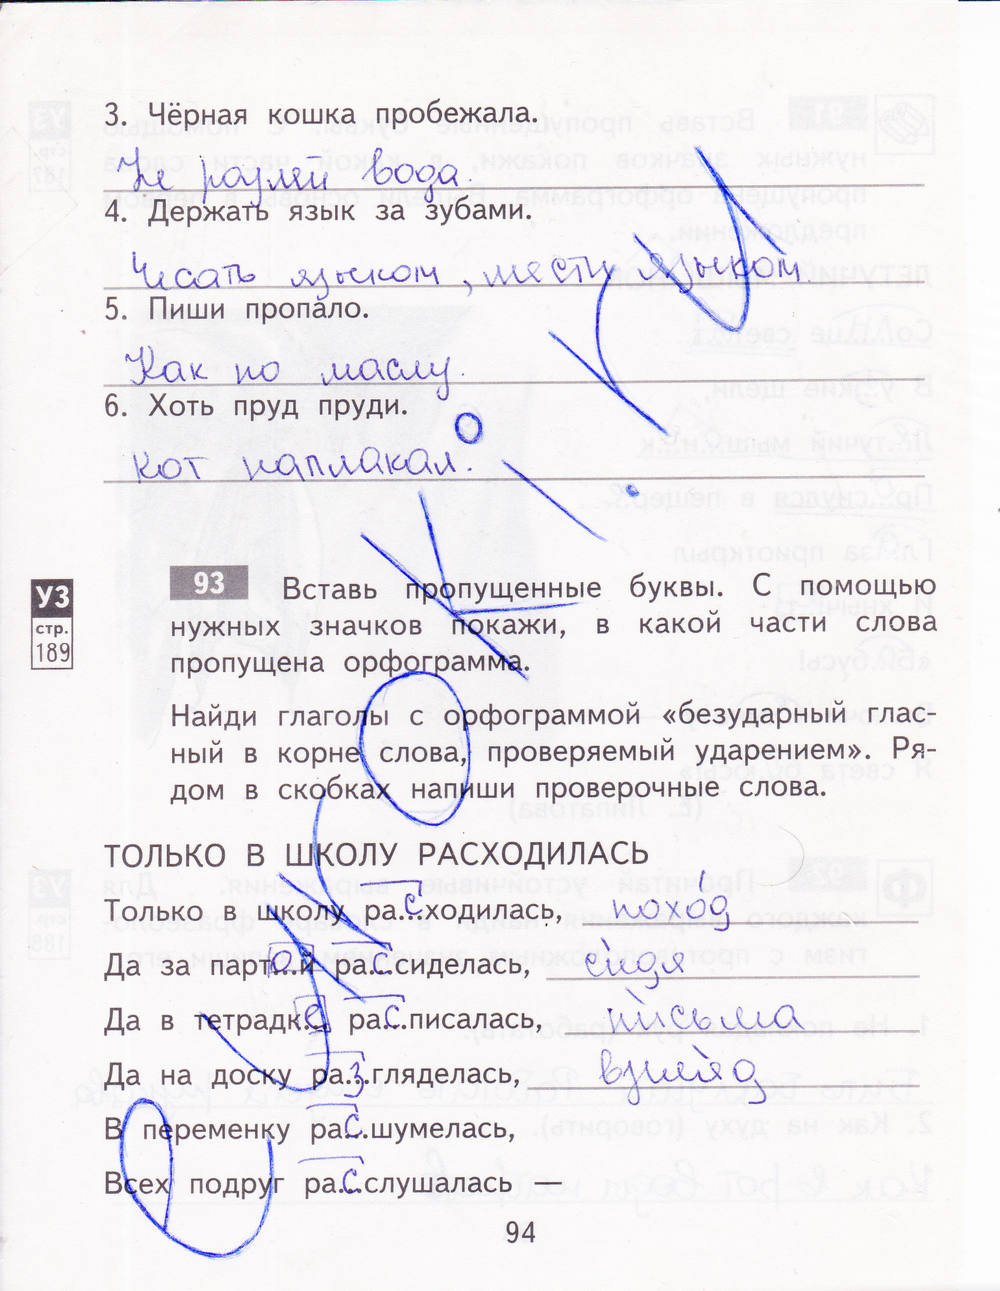 3. Чёрная кошка пробежала.
Не разлей вода.
4. Держать язык за зубами.
Чесать языком, мести языком.
5. Пиши пропало.
Как по маслу.
6. Хоть пруд пруди.
кот наплакал.
93 Вставь пропущенные буквы. С помощью
УЗ
стр.
189
нужных значков покажи, в какой части слова
пропущена орфограмма.
Найди глаголы с орфограммой «безударный глас-
ный в корне слова, проверяемый ударением». Ря-
дом в скобках напиши проверочные слова.
ТОЛЬКО В ШКОЛУ РАСХОДИЛАСЬ
Только в школу ра.С.ходилась, похо́д
Да за парто.й ра.С.сиделась, си́дя
Да в тетрадк.е. ра.С.писалась, пи́сьма
Да на доску ра.З.гляделась, взгля́д
В переменку ра.С.шумелась,
Всех подруг ра.С.слушалась —
94